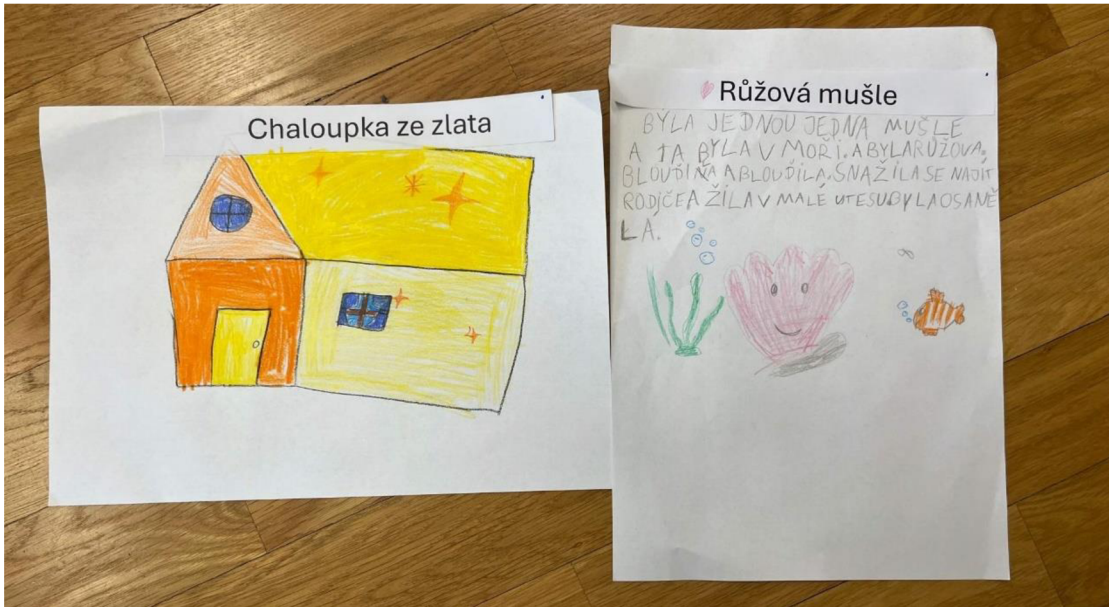 Chaloupka ze zlata
Růžová mušle
BYLA JEDNOU JEDNA MUŠLE
A TA BYLA V MOŘI. A BYLA RŮŽOVÁ.
BLOUDILA A BLOUDILA. SNAŽILA SE NAJÍT
RODIČE A ŽILA V MALÉ UTESU. BYLA OSAMĚ
LA.